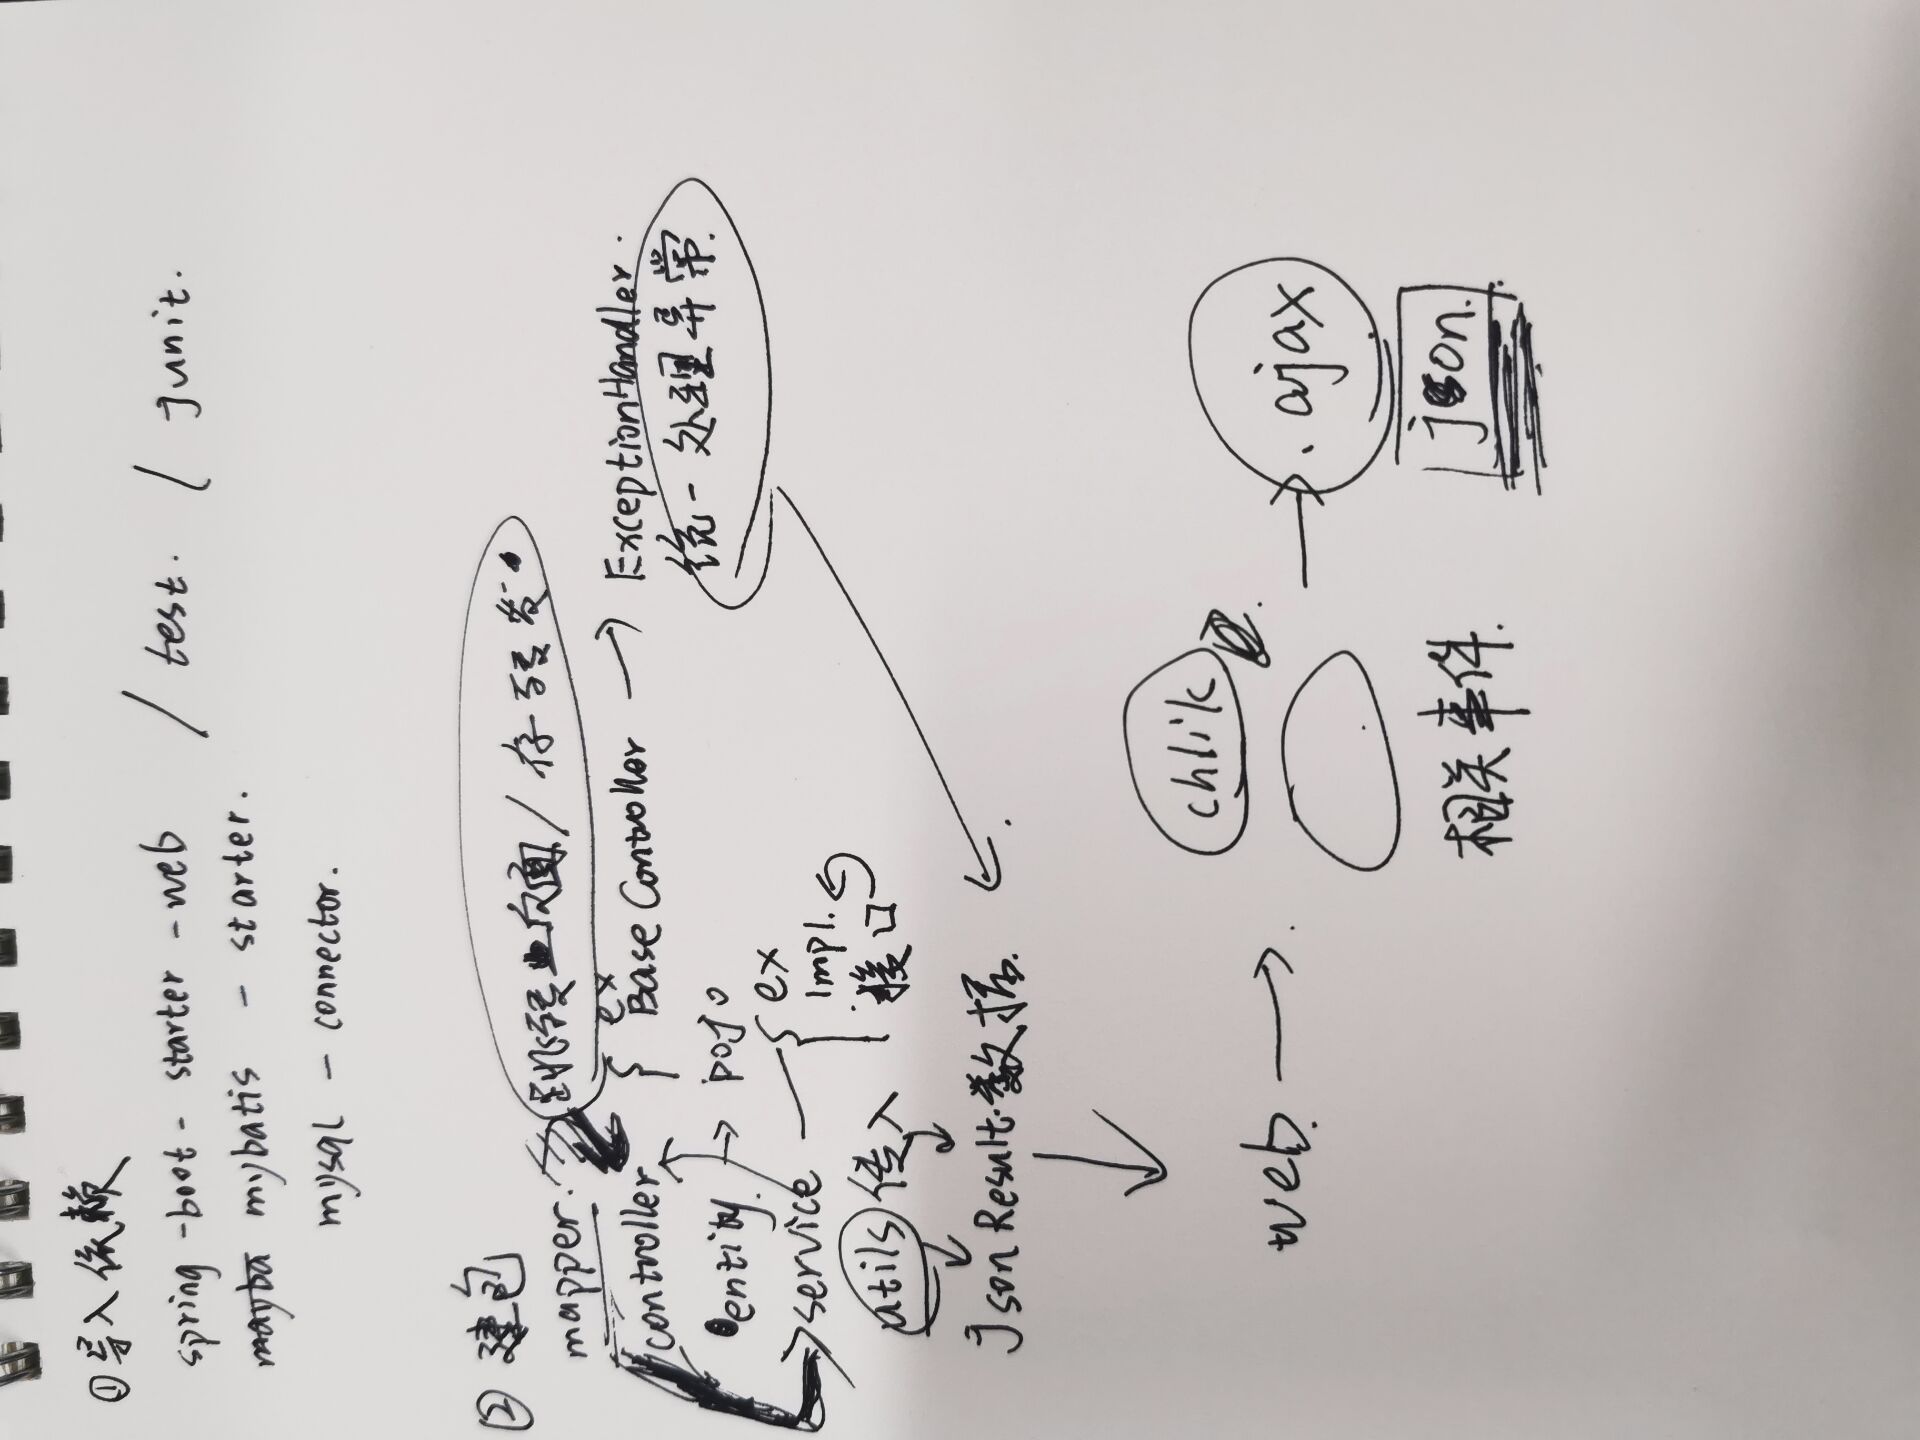 ① 导入依赖
spring-boot-starter-web / test. / junit.
mybatis - starter.
mysql - connector.
② 建包
mapper.
/存转发.
controller { ex
Base Controller → ExceptionHandler.
统一处理异常.
entity. → pojo
service { ex
Impl.
接口
utils 传入
JsonResult.数据.
web. →
chlik
相关事件.
→ .ajax
json.